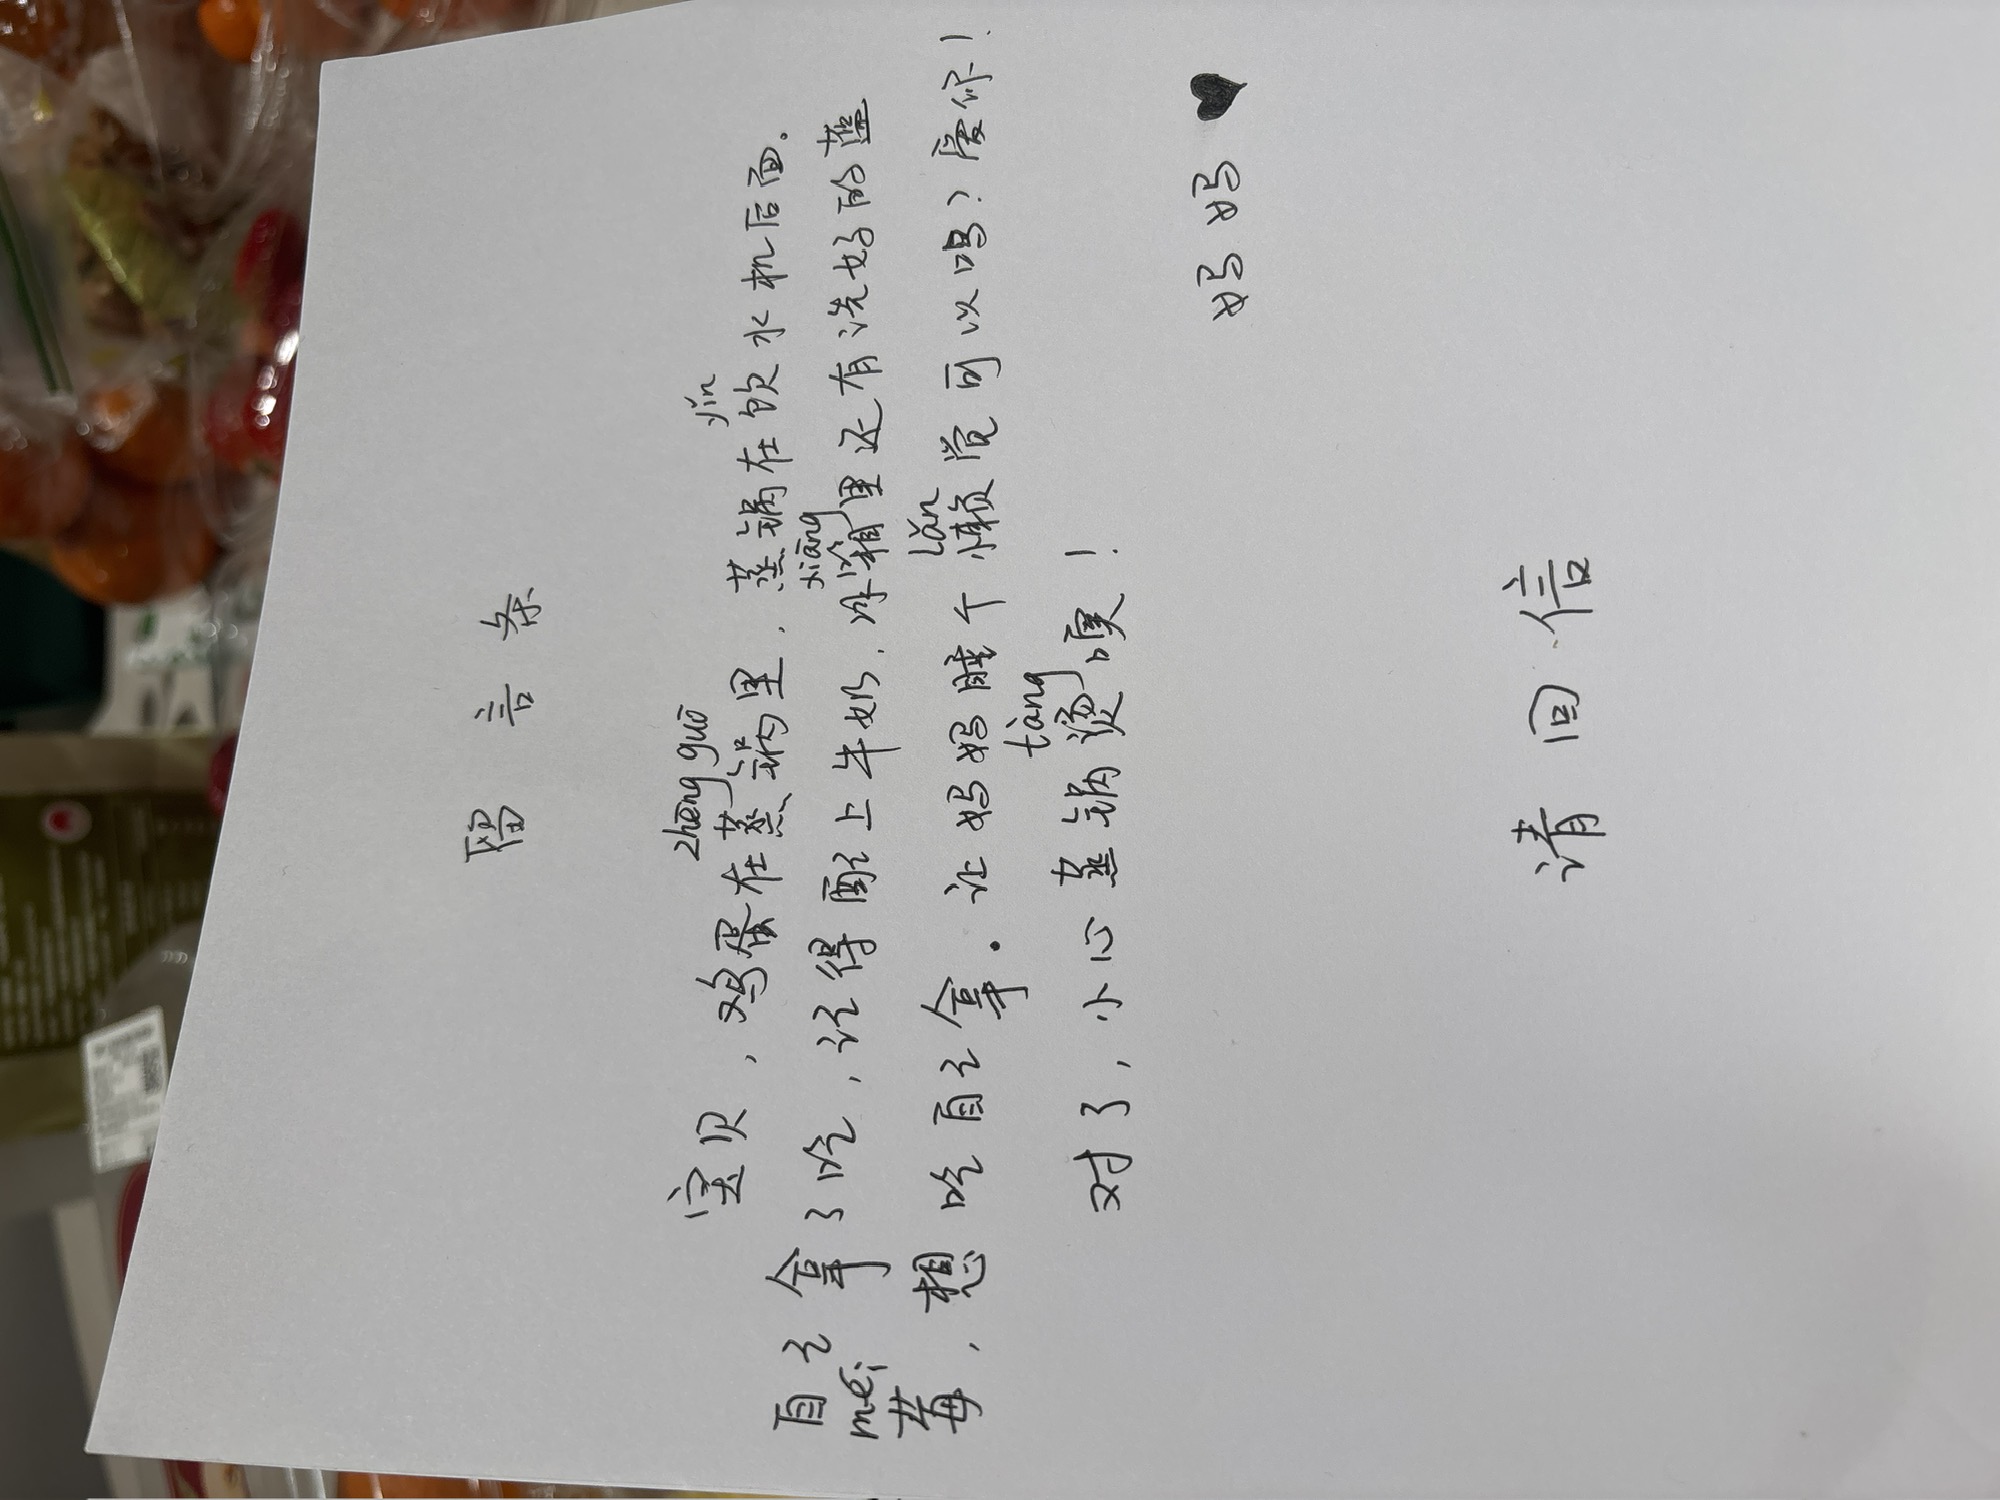 留言条
zhēng guō yǐn
宝贝，鸡蛋在蒸锅里，蒸锅在饮水机后面。
xiāng
自己拿了吃，记得配上牛奶，冰箱里还有洗好的蓝
méi lǎn
莓，想吃自己拿。让妈妈睡个懒觉可以吗？爱你！
tàng
对了，小心蒸锅烫噢！
妈妈 ♥
请回信